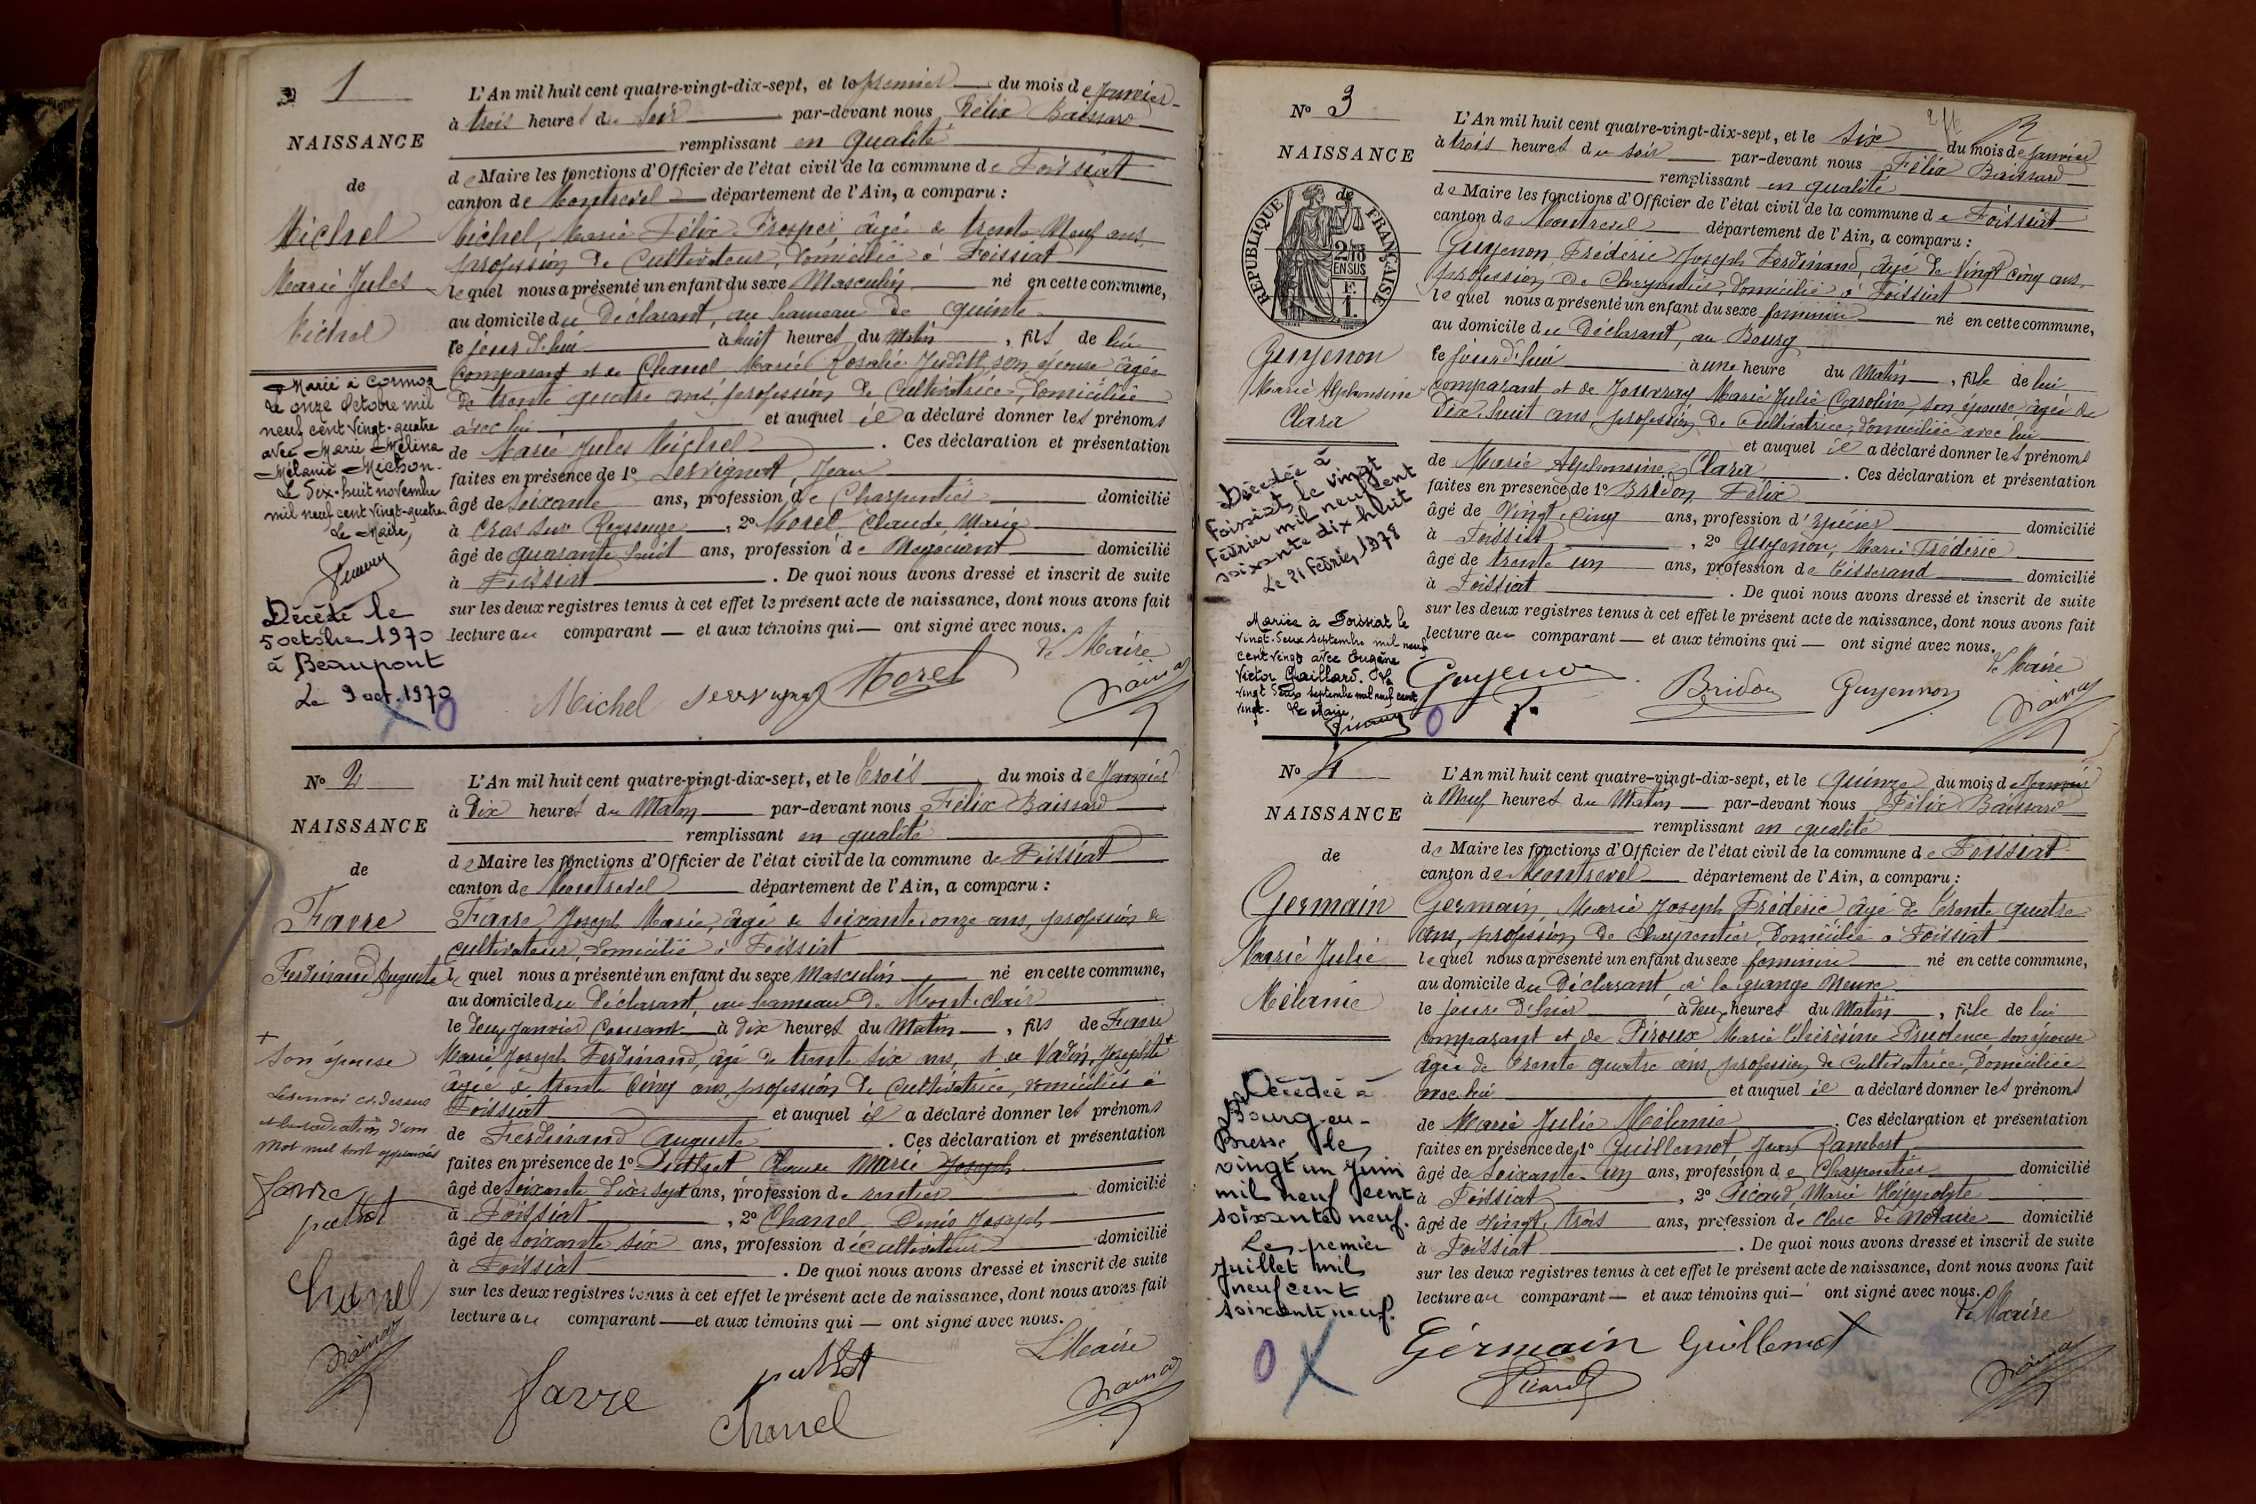 N° 1
NAISSANCE
de
Michel
Marie Jules
Michel
Marié à Cormoz
le onze Octobre mil
neuf cent vingt-quatre
avec Marie Mélina
Mélanie Michon.
Le Dix-huit novembre
mil neuf cent vingt-quatre
Le Maire,
Décédé le
5 octobre 1970
à Beaupont
Le 9 oct. 1970
L'An mil huit cent quatre-vingt-dix-sept, et le premier du mois de Janvier
à trois heures du Soir par-devant nous Félix Baissard
remplissant en qualité
de Maire les fonctions d'Officier de l'état civil de la commune de Foissiat
canton de Montrevel département de l'Ain, a comparu :
Michel, Marie Félix Prosper âgé de trente Neuf ans
profession de Cultivateur, domicilié à Foissiat
lequel nous a présenté un enfant du sexe Masculin né en cette commune,
au domicile du Déclarant, au hameau de quinte
le jour d'hui à huit heures du Matin, fils de lui
Comparant et de Chanel Marie Rosalie Judith son épouse âgée
de trente quatre ans, profession de Cultivatrice, domiciliée
avec lui et auquel il a déclaré donner les prénoms
de Marie Jules Michel . Ces déclaration et présentation
faites en présence de 1° Servignat, Jean
âgé de Soixante ans, profession de Charpentier domicilié
à Cras sur Reyssouze, 2° Morel Claude Marie
âgé de quarante huit ans, profession de Négociant domicilié
à Foissiat . De quoi nous avons dressé et inscrit de suite
sur les deux registres tenus à cet effet le présent acte de naissance, dont nous avons fait
lecture au comparant — et aux témoins qui — ont signé avec nous.
Le Maire
Michel Servignat Morel
N° 2
NAISSANCE
de
Favre
Ferdinand Auguste
+
Son épouse
Le renvoi ci-dessus
et la radiation d'un
mot nul sont approuvés
Favre
puthet
Chanel
L'An mil huit cent quatre-vingt-dix-sept, et le Trois du mois de Janvier
à Dix heures du Matin par-devant nous Félix Baissard
remplissant en qualité
de Maire les fonctions d'Officier de l'état civil de la commune de Foissiat
canton de Montrevel département de l'Ain, a comparu :
Favre, Joseph Marie, âgé de Soixante onze ans, profession de
cultivateur, domicilié à Foissiat
lequel nous a présenté un enfant du sexe Masculin né en cette commune,
au domicile du Déclarant, au hameau de Mont-clair
le deux Janvier Courant à dix heures du Matin, fils de Favre
Marie Joseph Ferdinand, âgé de trente six ans, et de Vadin, Josephte +
âgée de trente Cinq ans, profession de Cultivatrice, domiciliés à
Foissiat et auquel il a déclaré donner les prénoms
de Ferdinand Auguste . Ces déclaration et présentation
faites en présence de 1° Puthet Claude Marie Joseph
âgé de Soixante Dix-sept ans, profession de rentier domicilié
à Foissiat, 2° Chanel Denis Joseph
âgé de Soixante six ans, profession de cultivateur domicilié
à Foissiat . De quoi nous avons dressé et inscrit de suite
sur les deux registres tenus à cet effet le présent acte de naissance, dont nous avons fait
lecture au comparant — et aux témoins qui — ont signé avec nous.
L. Maire
Favre puthet
Chanel
N° 3
NAISSANCE
RÉPUBLIQUE FRANÇAISE
de
2/10 EN SUS
Guyenon
Marie Alphonsine
Clara
Décédée à
Foissiat, le vingt
Février mil neuf cent
soixante dix huit
Le 21 Février 1978
Mariée à Foissiat le
vingt-deux Septembre mil neuf
cent vingt avec Eugène
Victor Gaillard. Le
vingt deux Septembre mil neuf cent
vingt. Le Maire
L'An mil huit cent quatre-vingt-dix-sept, et le Six du mois de Janvier
à trois heures du soir par-devant nous Félix Baissard
remplissant en qualité
de Maire les fonctions d'Officier de l'état civil de la commune de Foissiat
canton de Montrevel département de l'Ain, a comparu :
Guyenon, Fréderic Joseph Ferdinand, âgé de Vingt cinq ans,
profession de Charpentier, domicilié à Foissiat
lequel nous a présenté un enfant du sexe féminin né en cette commune,
au domicile du Déclarant, au Bourg
le jour d'hui à une heure du Matin, fille de lui
comparant et de Josserand Marie Julie Caroline, son épouse âgée de
Dix-huit ans, profession de Cultivatrice, domiciliée avec lui
et auquel il a déclaré donner les prénoms
de Marie Alphonsine Clara . Ces déclaration et présentation
faites en présence de 1° Bridon Félix
âgé de Vingt Cinq ans, profession d'épicier domicilié
à Foissiat, 2° Guyenon, Marie Fréderic
âgé de trente un ans, profession de tisserand domicilié
à Foissiat . De quoi nous avons dressé et inscrit de suite
sur les deux registres tenus à cet effet le présent acte de naissance, dont nous avons fait
lecture au comparant — et aux témoins qui — ont signé avec nous.
Le Maire
Guyeno Bridon Guyennon
N° 4
NAISSANCE
de
Germain
Marie Julie
Mélanie
Décédée à
Bourg-en-
Bresse le
vingt un Juin
mil neuf cent
soixante neuf.
Le premier
Juillet mil
neuf cent
soixante neuf.
L'An mil huit cent quatre-vingt-dix-sept, et le Quinze du mois de Janvier
à Neuf heures du Matin par-devant nous Félix Baissard
remplissant en qualité
de Maire les fonctions d'Officier de l'état civil de la commune de Foissiat
canton de Montrevel département de l'Ain, a comparu :
Germain, Marie Joseph Fréderic, âgé de trente quatre
ans, profession de Charpentier, domicilié à Foissiat
lequel nous a présenté un enfant du sexe féminin né en cette commune,
au domicile du Déclarant, à la grange Neuve
le jour d'hier à deux heures du Matin, fille de lui
comparant et de Piroux Marie Thérèsine Prudence son épouse
âgée de trente quatre ans, profession de Cultivatrice, domiciliée
avec lui et auquel il a déclaré donner les prénoms
de Marie Julie Mélanie . Ces déclaration et présentation
faites en présence de 1° Guillemot Jean Lambert
âgé de Soixante-un ans, profession de Charpentier domicilié
à Foissiat, 2° Picard, Marie Hyppolyte
âgé de Vingt trois ans, profession de clerc de Notaire domicilié
à Foissiat . De quoi nous avons dressé et inscrit de suite
sur les deux registres tenus à cet effet le présent acte de naissance, dont nous avons fait
lecture au comparant — et aux témoins qui — ont signé avec nous.
Le Maire
Germain Guillemot
Picard